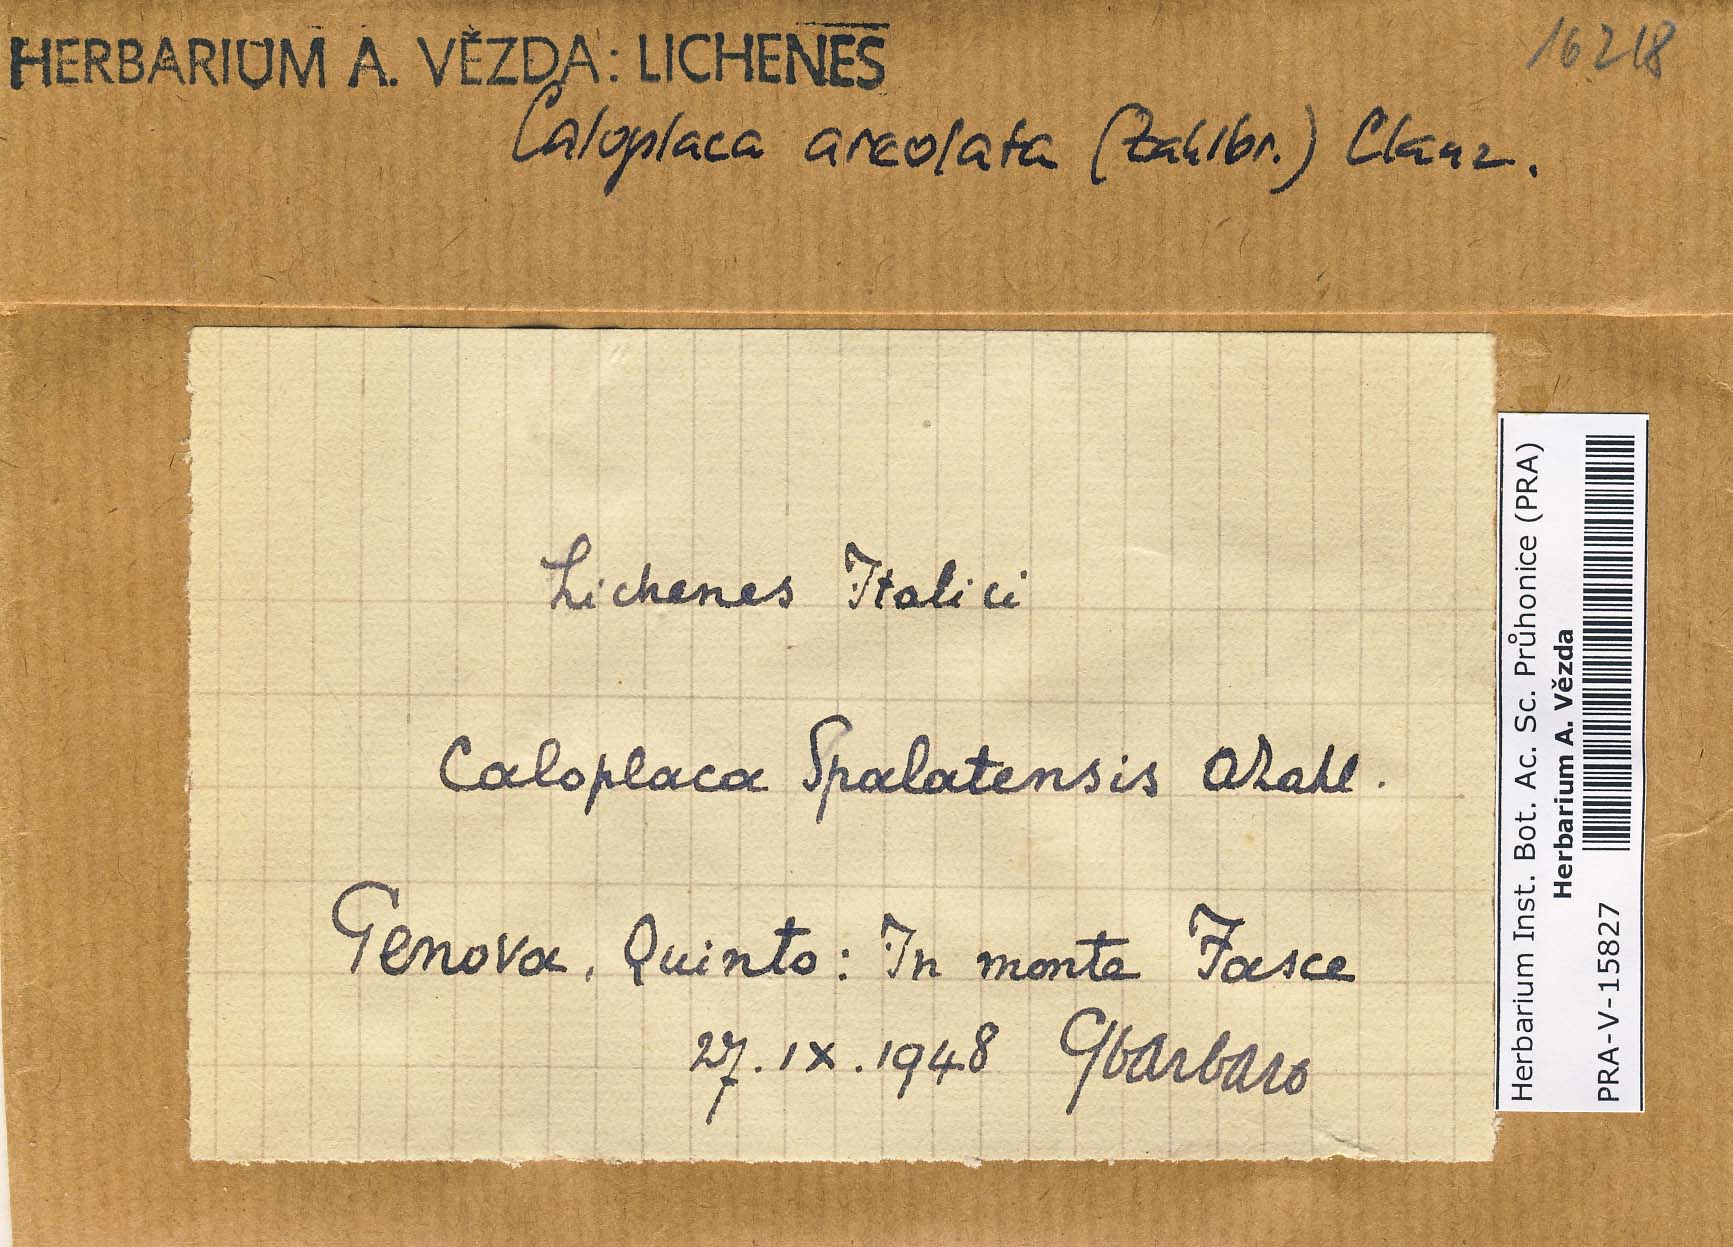 HERBARIUM A. VĚZDA: LICHENES
16218
Caloplaca areolata (Zahlbr.) Clauz.
Lichenes Italici
Caloplaca Spalatensis AZahl.
Genova, Quinto: In monte Fasce
27.IX.1948 GSbarbaro
Herbarium Inst. Bot. Ac. Sc. Průhonice (PRA)
Herbarium A. Vězda
PRA-V-15827